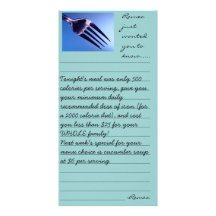 Renee
just
wanted
you to
know.....
Tonight's meal was only 500
calories per serving, gave you
your minimum daily
recommended dose of iron (for
a 2000 calorie diet), and cost
less than $25 for your
WHOLE family!
Next week's special for your
menu choice is cucumber soup
at $6 per serving.
-Renee